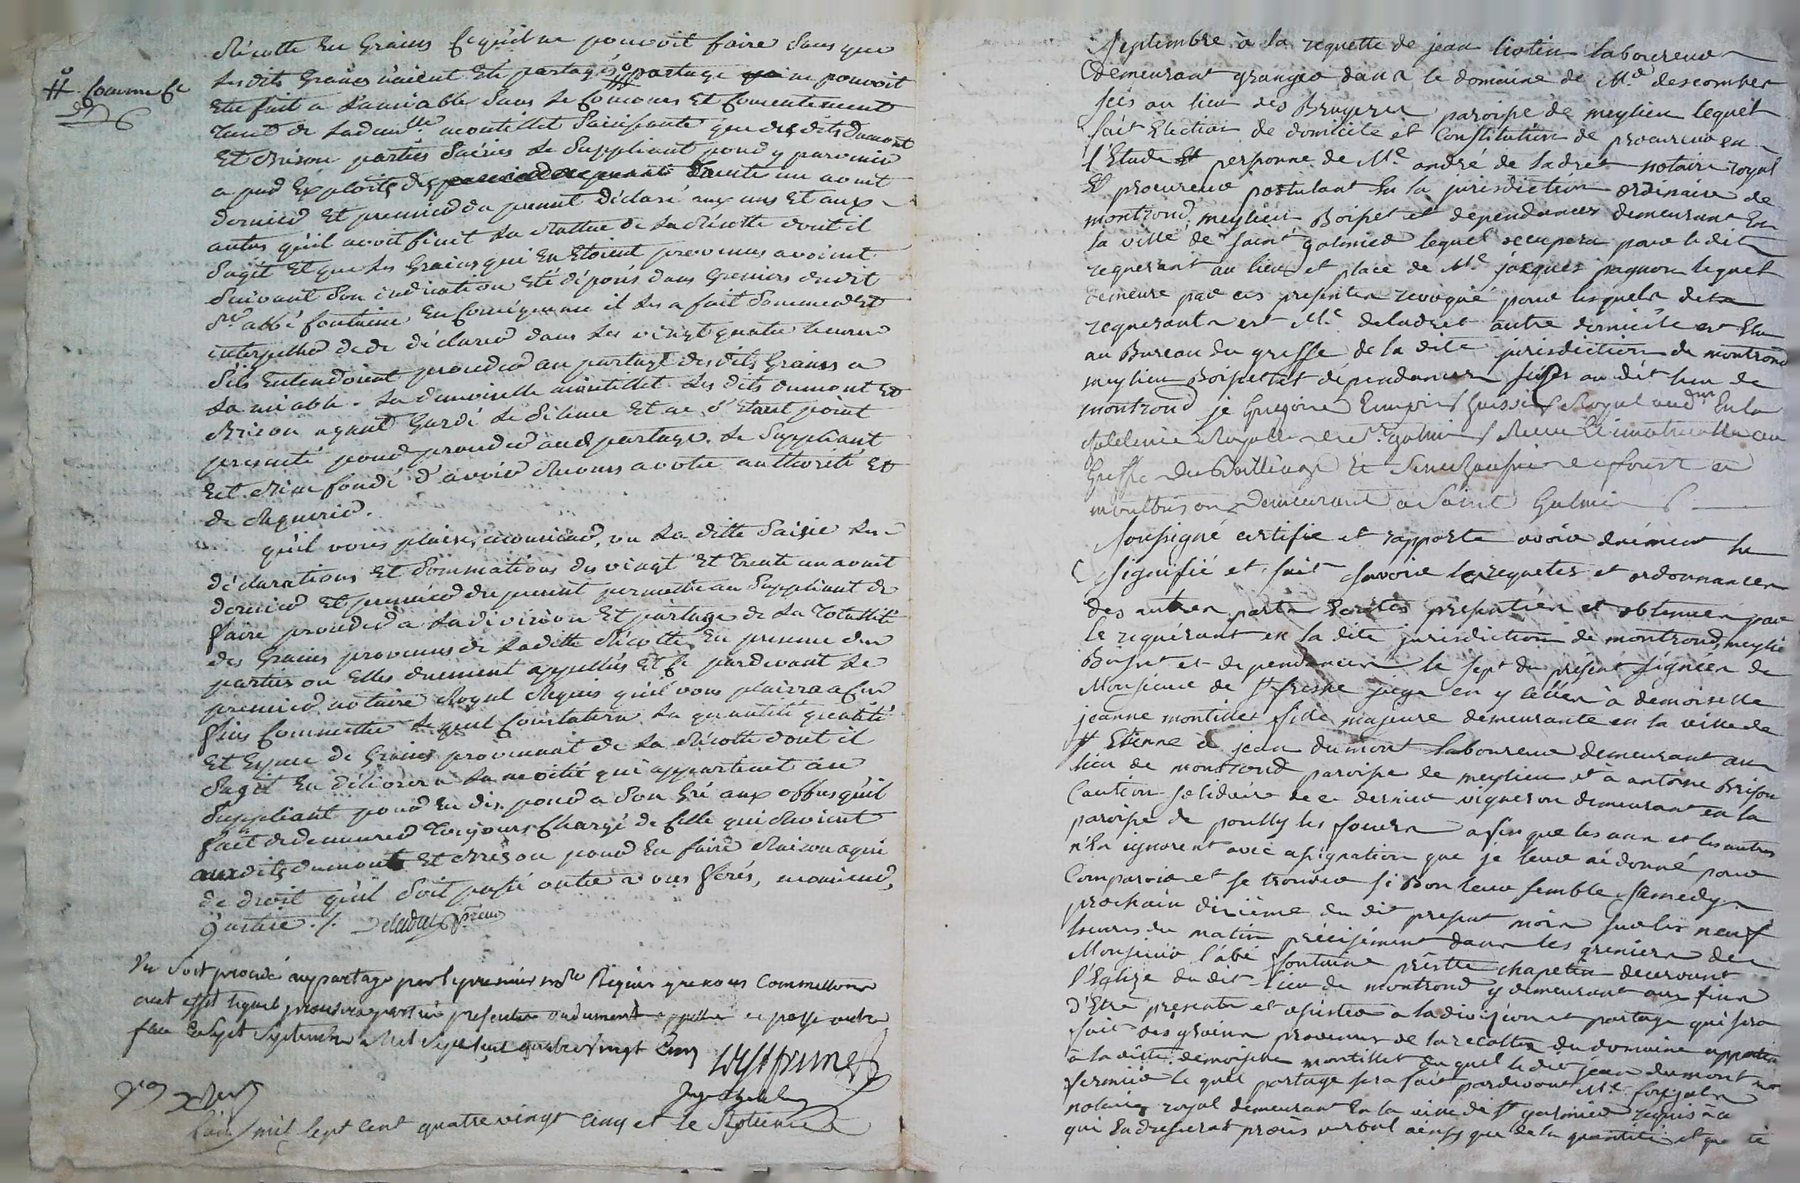 Récolte en Grains ce qu'il ne pouvoit faire sans que
les dits Grains n'aient été partagés # partage ne pouvoit
# comme ce
être fait a l'amiable sans le concours et consentement
tant de lad. dlle montillet saisissante que des dits dumont
et Brison parties saisies le suppliant pour y parvenir
a par Exploits des trente un aout
dernier et premier du present déclaré aux uns et aux
autres qu'il avoit finit la Battue de la Récolte dont il
s'agit et que les Grains qui en étoient provenus avoient
suivant son indication été déposés dans Greniers dudit
Sr abbé fontaine en conséquence il les a fait sommer et
interpeller de déclarer dans les vingt quatre heures
s'ils entendoient proceder au partage des dits Grains a
la miable. La demoiselle montillet les dits dumont et
Brison ayant Gardé le silence et ne s'étant point
presenté pour proceder aud partage. Le suppliant
est bien fondé d'avoir Recours a votre authorité et
de Requerir.
qu'il vous plaise, monsieur, vu la ditte saisie les
déclarations et sommations des vingt et trente un aout
dernier et premier du present permettre au suppliant de
faire proceder a la division et partage de la totalité
des Grains provenus de la ditte Récolte en presence des
parties ou elles duement appellées et ce pardevant le
premier notaire Royal Requis qu'il vous plairra a ces
fins commettre lequel constatera la quantité qualité
et Espece de Grains provenant de la Récolte dont il
s'agit en délivrera la moitié qui appartient au
suppliant pour en disposer a son Gré aux offres qu'il
fait de demeurer toujours chargé de celle qui Revient
auxdits dumont et Brison pour en faire Raison a qui
de droit qu'il soit passé outre a vos ferés, monsieur,
Justice ./. Deladret
Vu soit procédé au partage par le premier nore Requis que nous Commettons
a cet effet lequel procedera parties presentes ou dument appellées et passé outre
fait ce Sept Septembre Mil Sept cent quatre vingt Cinq
Juge
L'an mil sept cent quatre vingt cinq et le
Septembre à la requette de jean liotin laboureur
demeurant granger dans le domaine de Mr descombes
scis au lieu des Bruyeres paroisse de meylieu lequel
fait Election de domicile et Constitution de procureur en
l'Etude et personne de Me andré de ladret notaire royal
et procureur postulant en la jurisdiction ordinaire de
montrond, meylieu Boisset et dépendances demeurant en
la ville de saint galmier lequel occupera pour le dit
requerant au lieu et place de Me jacques pagnon lequel
demeure par ces presentes revoqué pour lesquels
requerants est Me deladret autre domicile est Elu
au Bureau du greffe de la dite jurisdiction de montrond
meylieu Boisset et dépendances scises au dit lieu de
montrond je Gregoire huissier Royal en la
chatelenie Royalle de St galmier Receu et immatriculé au
Greffe du Bailliage et Senechaussée de forest a
montbrison Demeurant a Saint Galmier
soussigné certifie et rapporte avoir duement
signifié et fait savoir les requetes et ordonnances
des autres parts Ecrites presentées et obtenues par
le requérant en la dite jurisdiction de montrond, meylieu
Boisset et dependances le sept du présent signées de
Monsieur de St fresne juge en y celles à demoiselle
jeanne montillet fille majeure demeurante en la ville de
St Etienne à jean dumont laboureur demeurant au
lieu de montrond paroisse de meylieu et à antoine Brison
Caution solidaire de ce dernier vigneron demeurant en la
paroisse de pouilly les feurs afin que les uns et les autres
n'En ignorent avec assignation que je leur ai donné pour
Comparoir et se trouver si Bon leur semble samedy
prochain dixième du dit present mois sur les neuf
heures du matin précisément dans les greniers de
Monsieur l'abé fontaine prêtre chapelain decervant
l'Eglize du dit lieu de montrond y demeurant aux fins
d'Etre presents et assister à la division et partage qui sera
fait des grains provenus de la récolte du domaine appartenant
à la ditte demoiselle montillet du quel le dit jean dumont est
fermier le quel partage sera fait pardevant Me
notaire royal demeurant en la ville de St galmier requis à ce
qui En dressera procès verbal ainsy que de la quantité et qualité